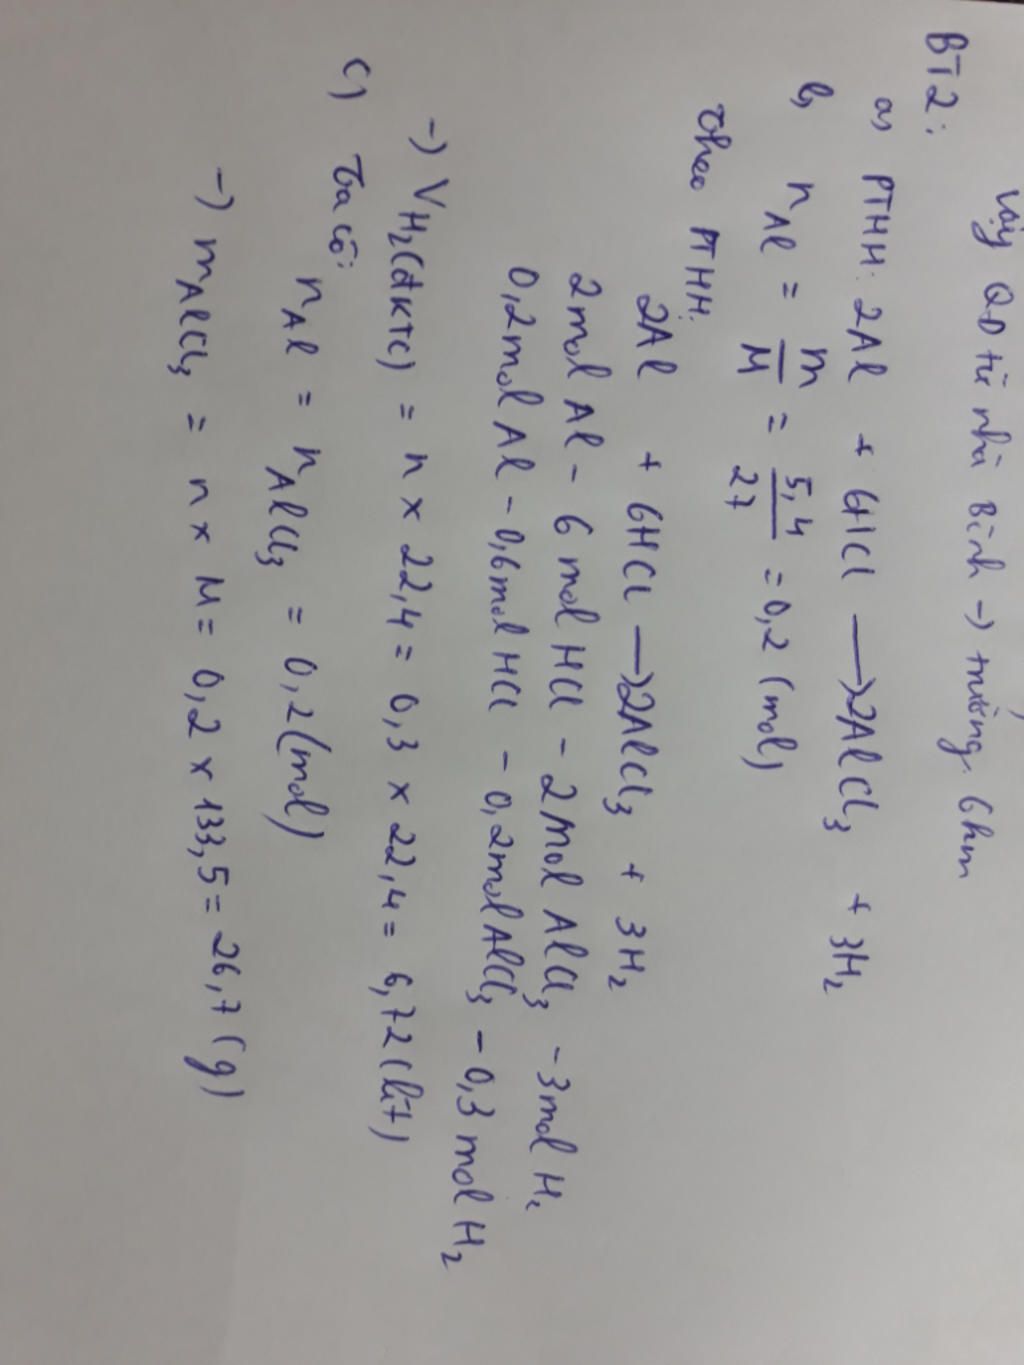 Vậy QĐ từ nhà Bình -> trường. 6km
BT2:
a, PTHH: 2Al + 6HCl -> 2AlCl₃ + 3H₂
b, nAl = m/M = 5,4/27 = 0,2 (mol)
Theo PTHH:
2Al + 6HCl -> 2AlCl₃ + 3H₂
2mol Al - 6 mol HCl - 2mol AlCl₃ - 3mol H₂
0,2mol Al - 0,6mol HCl - 0,2mol AlCl₃ - 0,3 mol H₂
-) VH₂(đktc) = n x 22,4 = 0,3 x 22,4 = 6,72 (lít)
c) Ta có:
nAl = nAlCl₃ = 0,2 (mol)
-) mAlCl₃ = n x M = 0,2 x 133,5 = 26,7 (g)